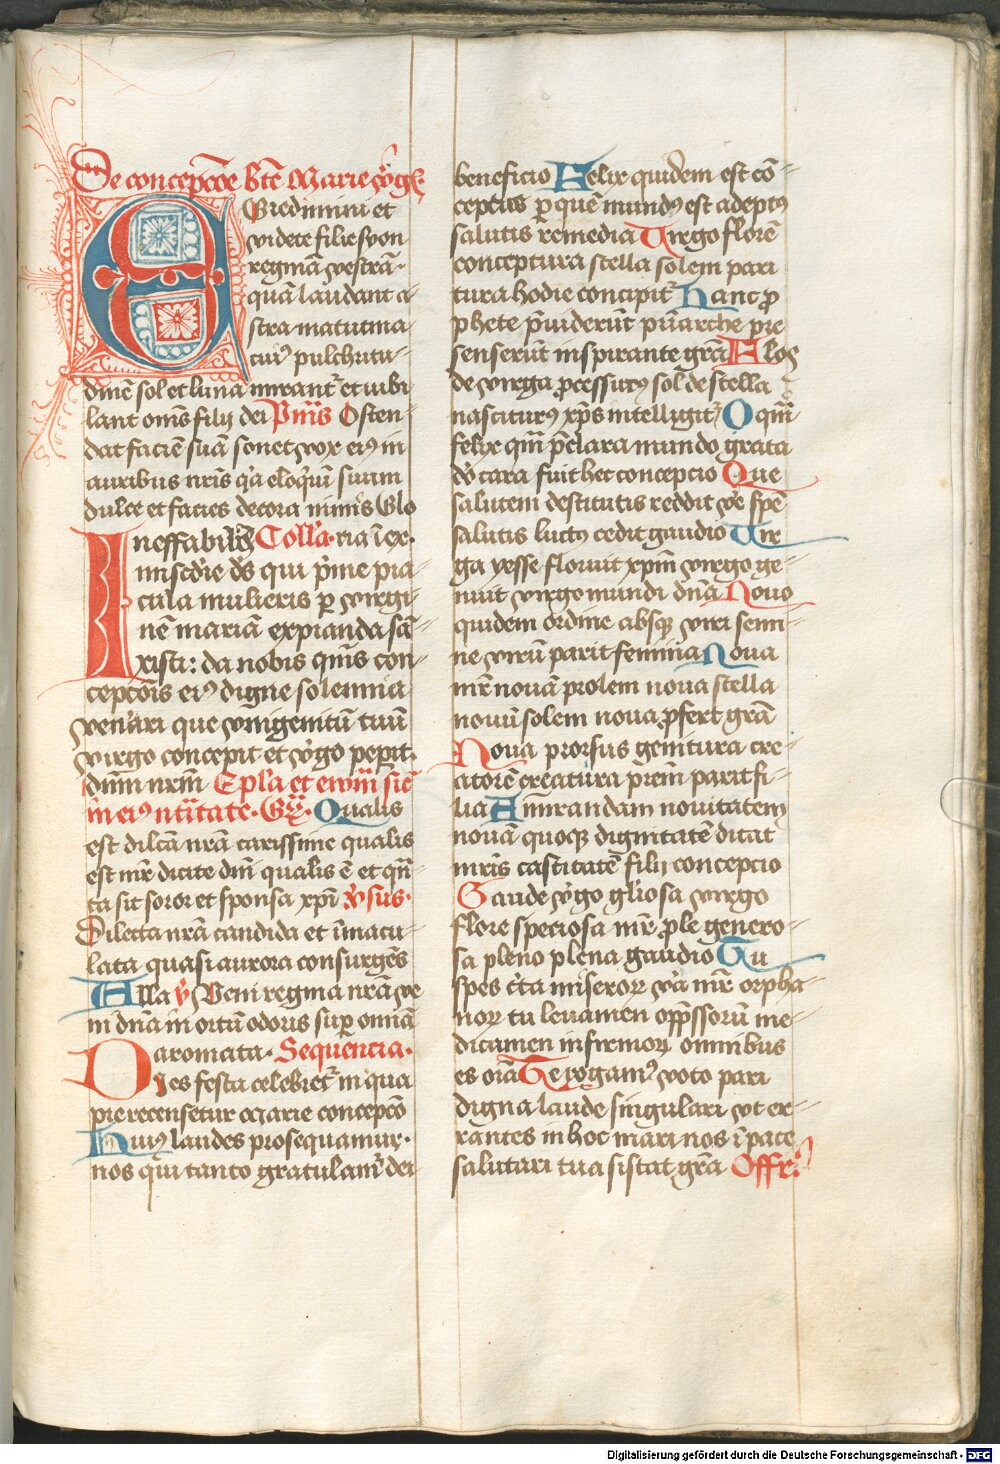 De concepcōe btē Marie v̓gīs
EGredimini et
videte filie syon
reginā vestrā·
quā laudant a
stra matutina
cui9 pulchritu
dinē sol et luna mirant᷑ et iubi
lant om̄s filij dei Psm̄s Osten
dat faciē suā sonet vox ei9 in
auribus nr̄is q̓a eloq̓uī suum
dulce et facies decora nimis Glo
Ineffabilis Coll̓a· ria ī ex·
miscd̓ie ds̄ qui p̓me pia
cula mulieris ꝑ virgi
nē mariā expianda sā
xisti: da nobis qm̄s con
cepcōis ei9 digne solemnia
ven̓ari que vnigenitū tuū
virgo concepit et v̓go peperit·
dnm̄ nrm̄ Epl̓a et ewm̄ sic̄
in ei9 n̄titate· Gͬ· Qualis
est dilcā nr̄a carissime qualis
est mr̄ dicite dnī qualis ē et qn̄
ta sit soror et sponsa xp̄i v̓sus·
Dilecta nr̄a candida et īmacu
lata quasi aurora consurgēs
Alla v̓ Veni regina nr̄a ve
ni dn̄a in ortū odoris sup̱ omīa
aromata· Sequencia·
Dies festa celebret᷑ in qua
pie recensetur Marie concepcō
Hui9 laudes prosequamur·
nos qui tanto gratulam᷑ dei
beneficio Felix quidem est cō
ceptus ꝑ quē mund9 est adept9
salutis remedia Virgo florē
conceptura stella solem pari
tura hodie concipit᷑ Hanc ꝓ
phete p̄uiderūt pūarche pre
senserūt inspirante grā Flos
de virga ꝓcessur9 sol de stella
nascitur9 xp̄s intelligit᷑ O qm̄
felix qm̄ p̄clara mundo grata
do̓ cara fuit hec concepcio Que
salutem destitutis reddit v̓e spē
salutis luct9 cedit gaudio Vir
ga yesse floruit xp̄m virgo ge
nuit virgo mundi dn̄a Nouo
quidem ordine absqꝫ viri semi
ne virū parit femina Noua
mr̄ nouā prolem noua stella
nouū solem noua ꝓfert grā
Noua prorsus genitura cre
atorē creatura prem̄ parit fi
lia Admirandam nouitatem
nouā quoqꝫ dignitatē ditat
mr̄is castitatē filij concepcio
Gaude v̓go gl̓iosa virgo
flore speciosa mr̄ ꝓle genero
sa pleno plena gaudio Tu
spes c̓ta miseroꝝ v̓a mr̄ orpha
noꝝ tu leuamen opp̄ssorū me
dicamen infirmoꝝ omnibus
es oīa Te rogam9 voto pari
digna laude singulari vt er
rantes in hoc mari nos ī pace
salutari tua sistat grā Offr̓·
Digitalisierung gefördert durch die Deutsche Forschungsgemeinschaft - DFG